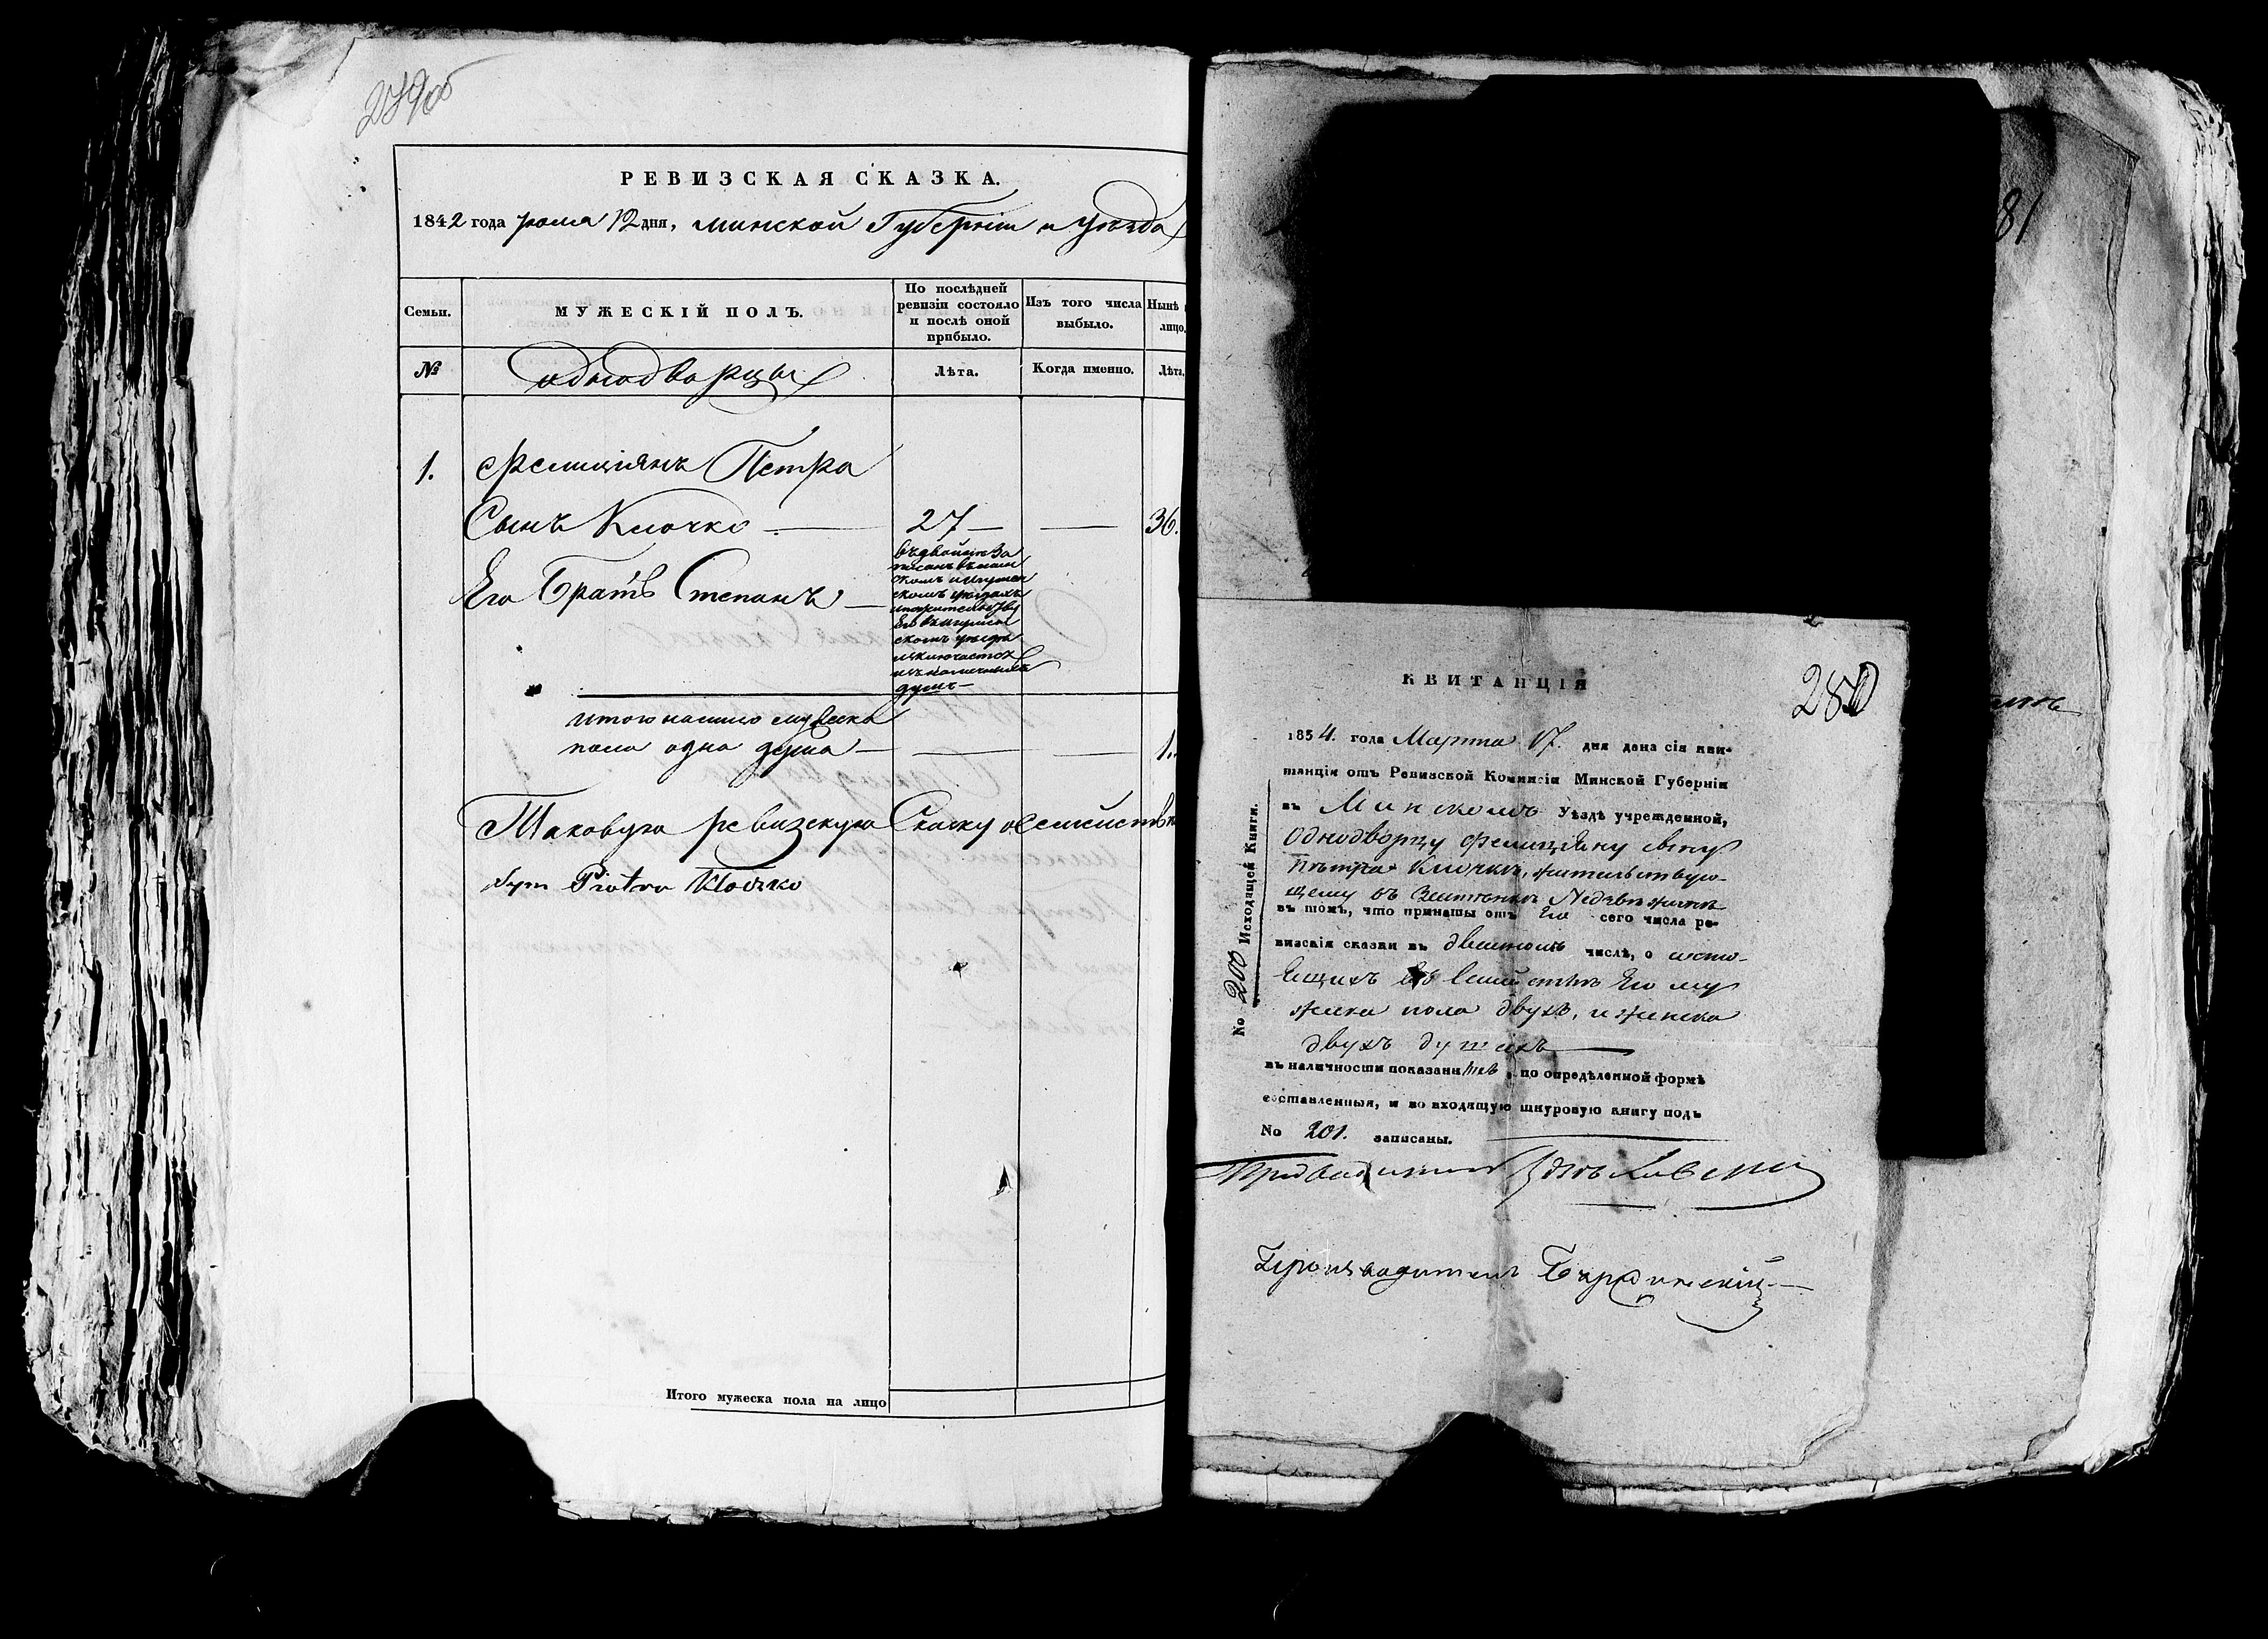 279об
РЕВИЗСКАЯ СКАЗКА.
1842 года 12 дня, Минской Губерніи и Уѣзда
Семьи.
МУЖЕСКІЙ ПОЛЪ.
По послѣдней ревизіи состояло и послѣ оной прибыло.
Изъ того числа выбыло.
Нынѣ
лицо.
№
однодворцы
Лѣта.
Когда именно.
Лѣта.
1. Фелиціянъ Петра
Сынъ Клочко — 27 — — 36.
Его Братъ Степанъ —
въдвойнѣ за
писанъ въ мин
скомъ и игумен
скомъ уѣздахъ
Его въ игумен
скомъ уѣздѣ
душъ —
итого налицо мужеска
пола одна душа — — — 1.
Таковую ревизскую Сказку о семействѣ
Syn Piotra Kloczko
Итого мужеска пола на лицо
81
280
КВИТАНЦІЯ
1834. года Марта 17. дня дана сія кви-
танція отъ Ревизской Комиссіи Минской Губерніи
въ Минскомъ Уѣздѣ учрежденной,
Однодворцу Фелиціяну сыну
Петра Клочкѣ, жительствую-
щему въ
въ томъ, что приняты отъ Его сего числа ре-
визскія сказки въ числѣ, о состо-
ящихъ въ семействѣ Его му
жеска пола двухъ, и женска
двухъ душахъ —
въ наличности показани , по опредѣленной формѣ
составленныя, и во входящую шнуровую книгу подъ
No 201. записаны.
No 200 Исходящей Книги.
Производитель